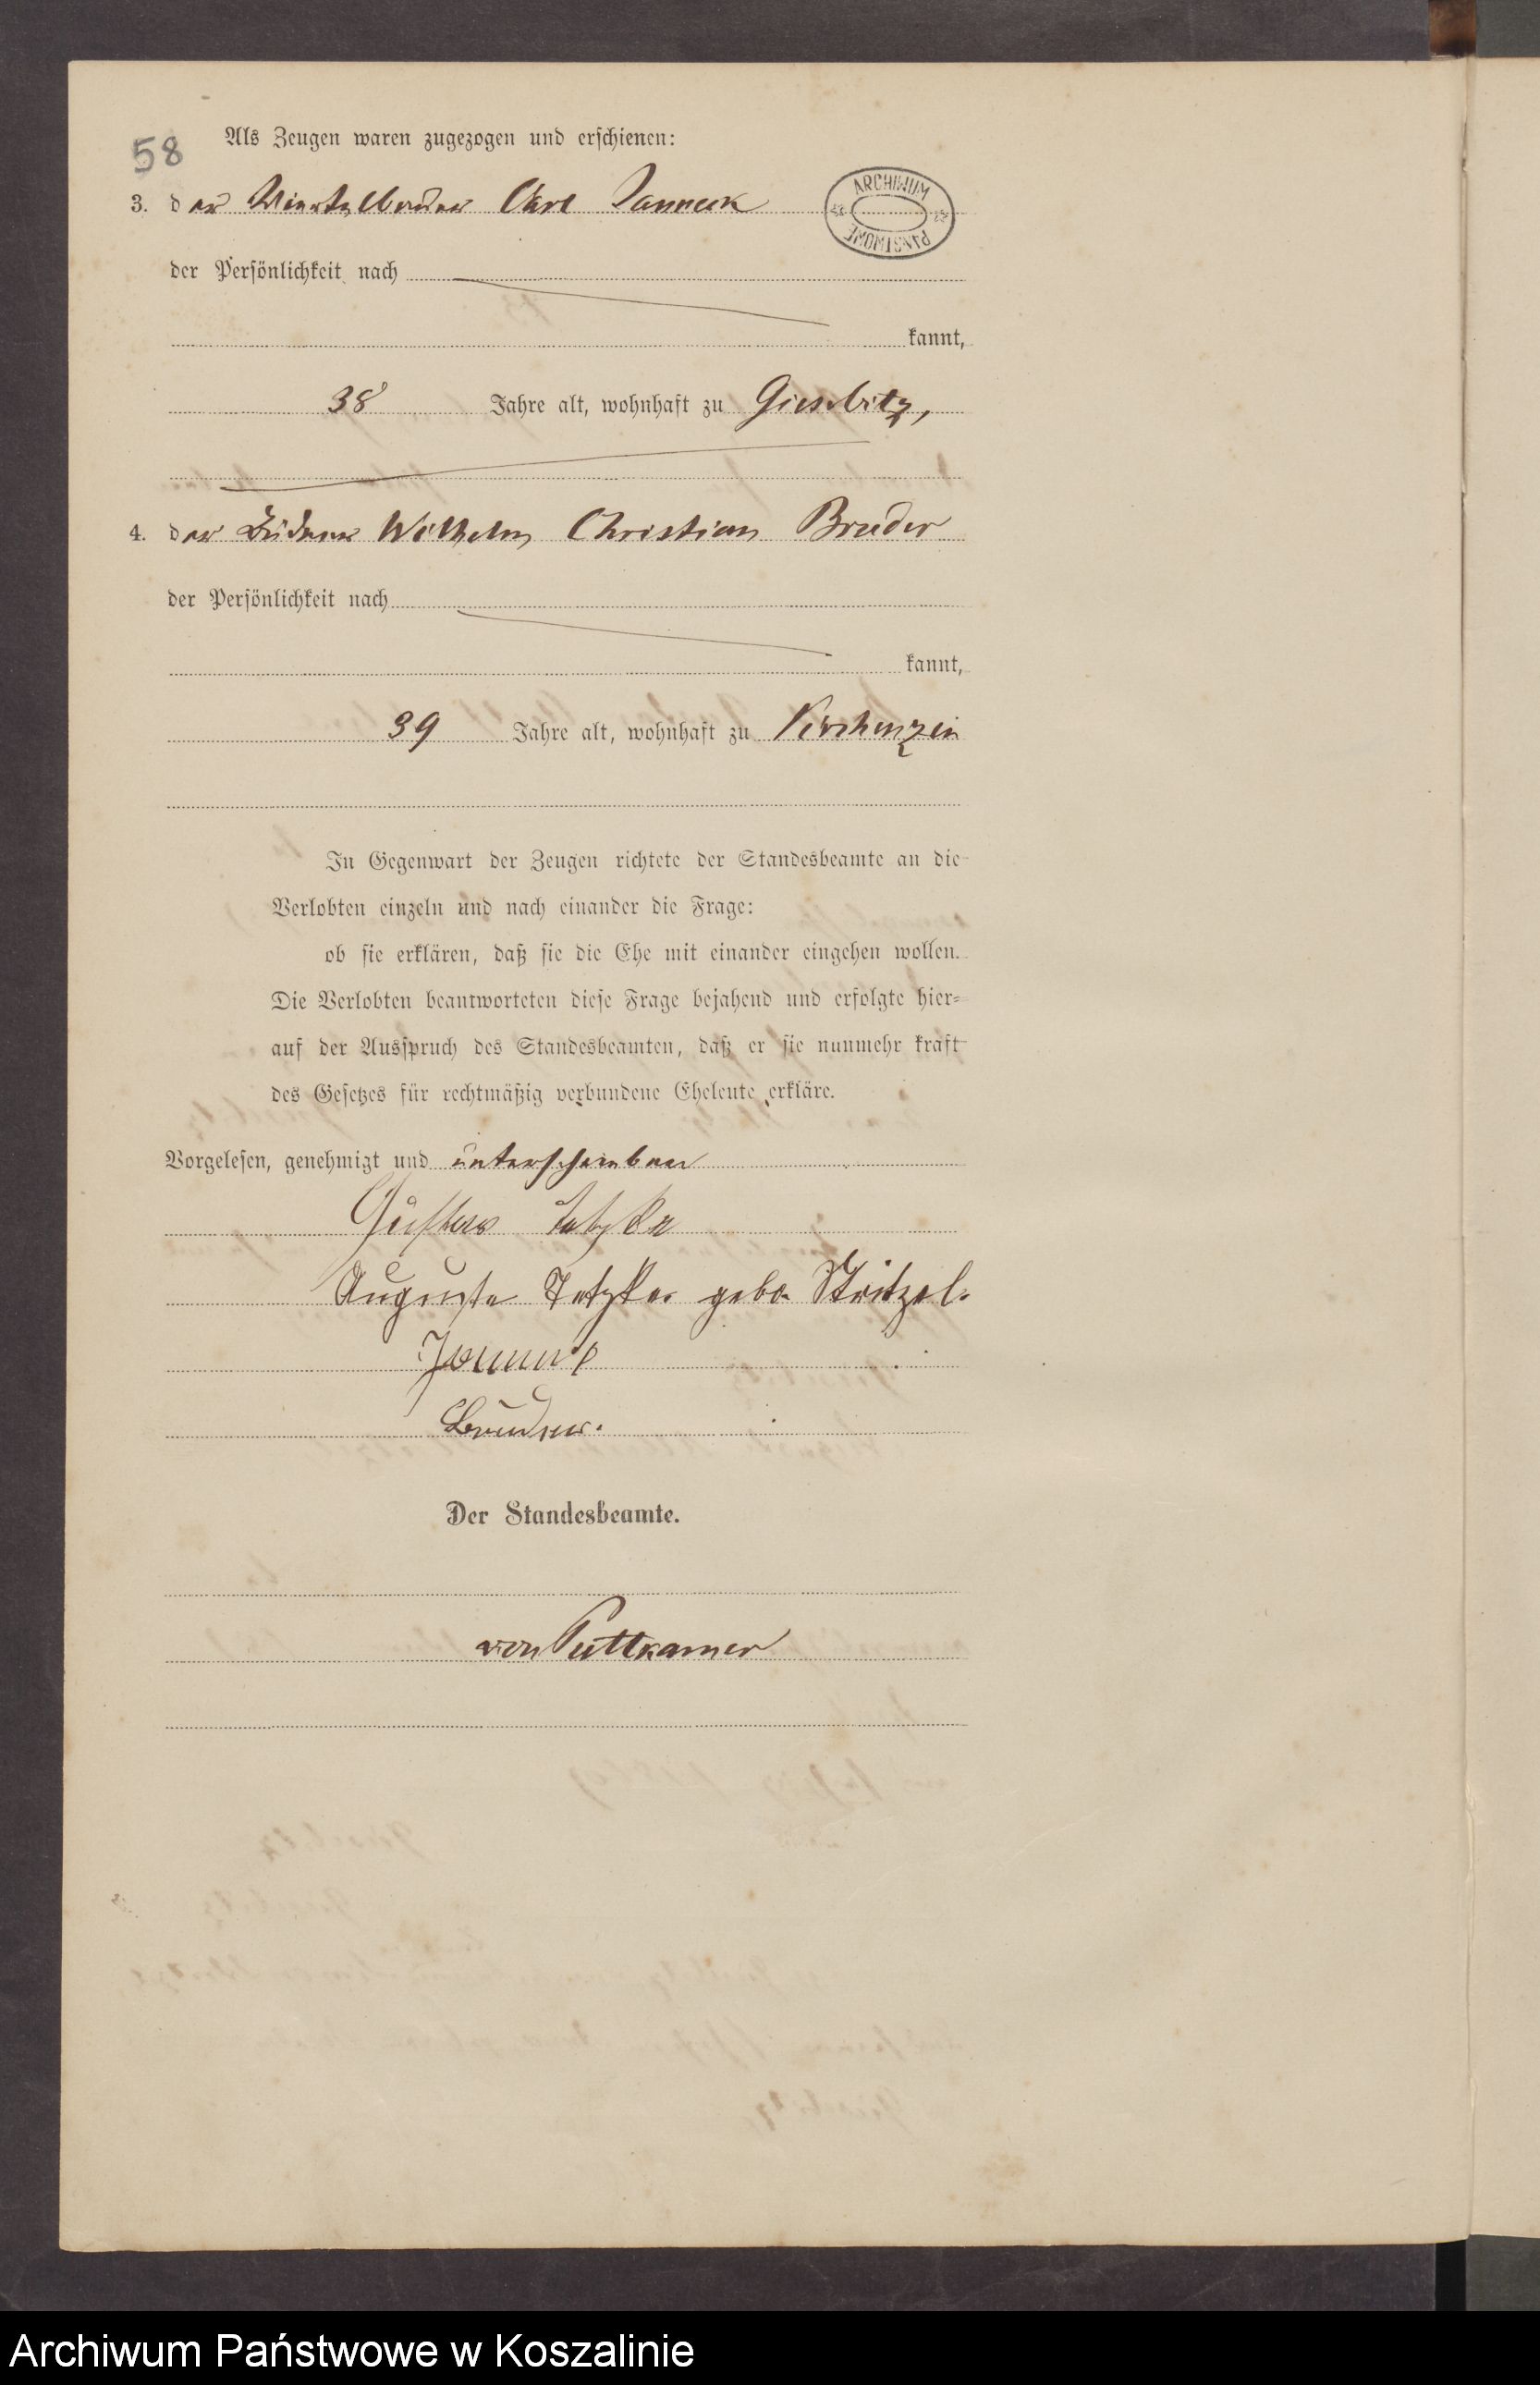 58
Als Zeugen waren zugezogen und erschienen:
3. der Viertelbauer Carl Janneck
der Persönlichkeit nach
kannt,
38 Jahre alt, wohnhaft zu Giesebitz,
4. der Büdner Wilhelm Christian Bruder
der Persönlichkeit nach
kannt,
39 Jahre alt, wohnhaft zu Virchenzin
In Gegenwart der Zeugen richtete der Standesbeamte an die
Verlobten einzeln und nach einander die Frage:
ob sie erklären, daß sie die Ehe mit einander eingehen wollen.
Die Verlobten beantworteten diese Frage bejahend und erfolgte hier-
auf der Ausspruch des Standesbeamten, daß er sie nunmehr kraft
des Gesetzes für rechtmäßig verbundene Eheleute erkläre.
Vorgelesen, genehmigt und unterschrieben
Gustav Tetzke
Auguste Tetzke geb. Stritzel.
Bruder.
Der Standesbeamte.
von Puttkamer
ARCHIWUM PAŃSTWOWE
Archiwum Państwowe w Koszalinie